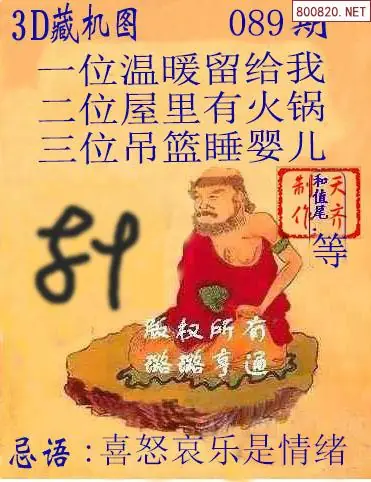 800820.NET
3D藏机图 089期
一位温暖留给我
二位屋里有火锅
三位吊篮睡婴儿
天齐
制作
和值尾:
等
版权所有
璐璐亨通
忌语:喜怒哀乐是情绪